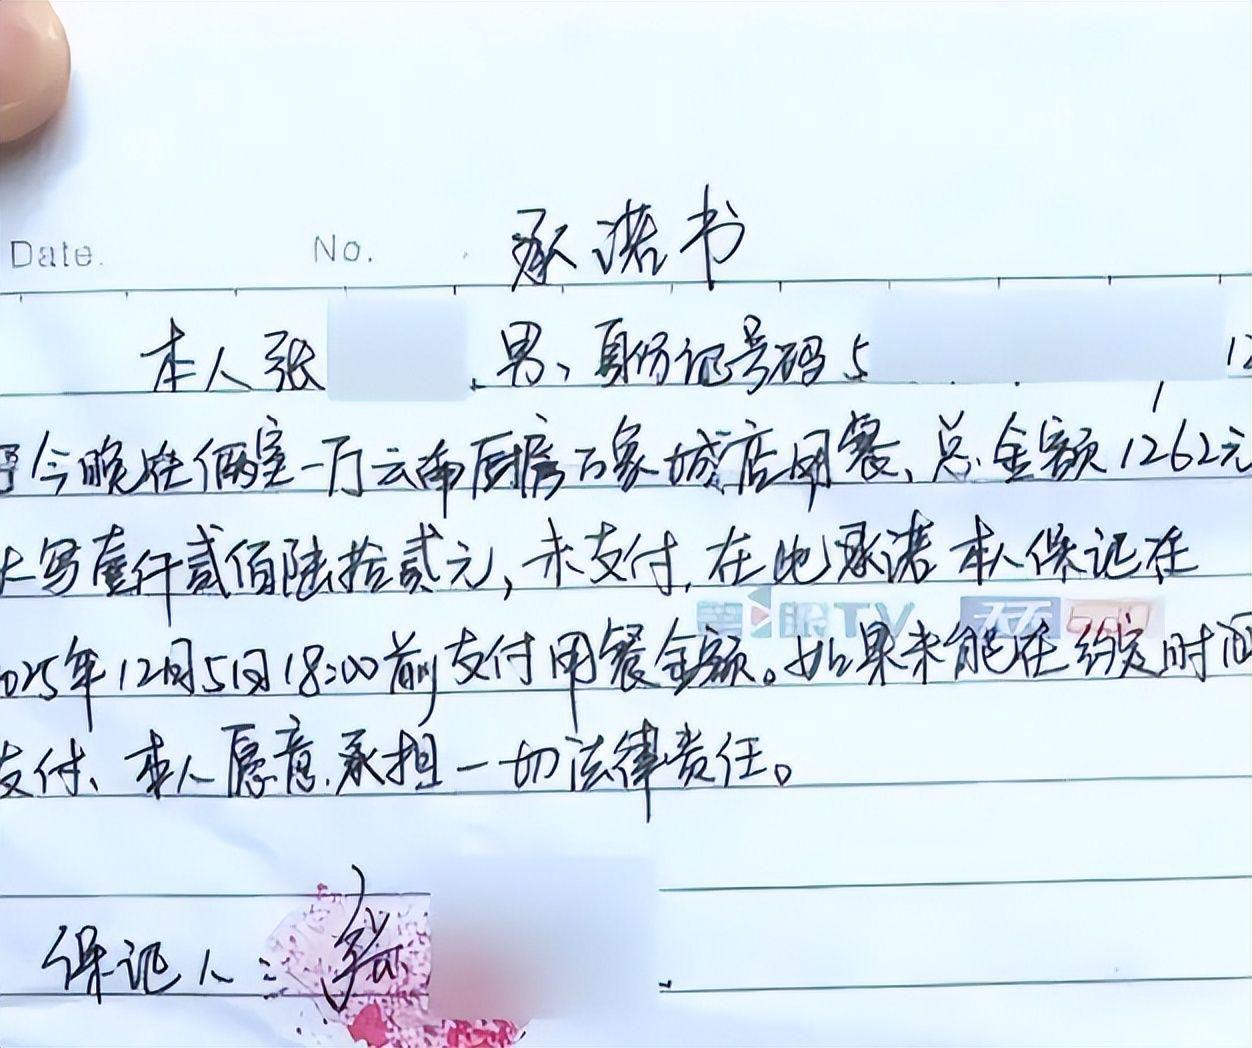 Date. No. 承诺书
本人张 、男、身份记号码5 12
今晚在俩室一厅云南厨房万象城店用餐、总金额1262元
大写壹仟贰佰陆拾贰元，未支付，在此承诺本人保记在
025年12月5日18:00前支付用餐金额。如果未能在约定时间
支付、本人愿意承担一切法律责任。
保证人：张